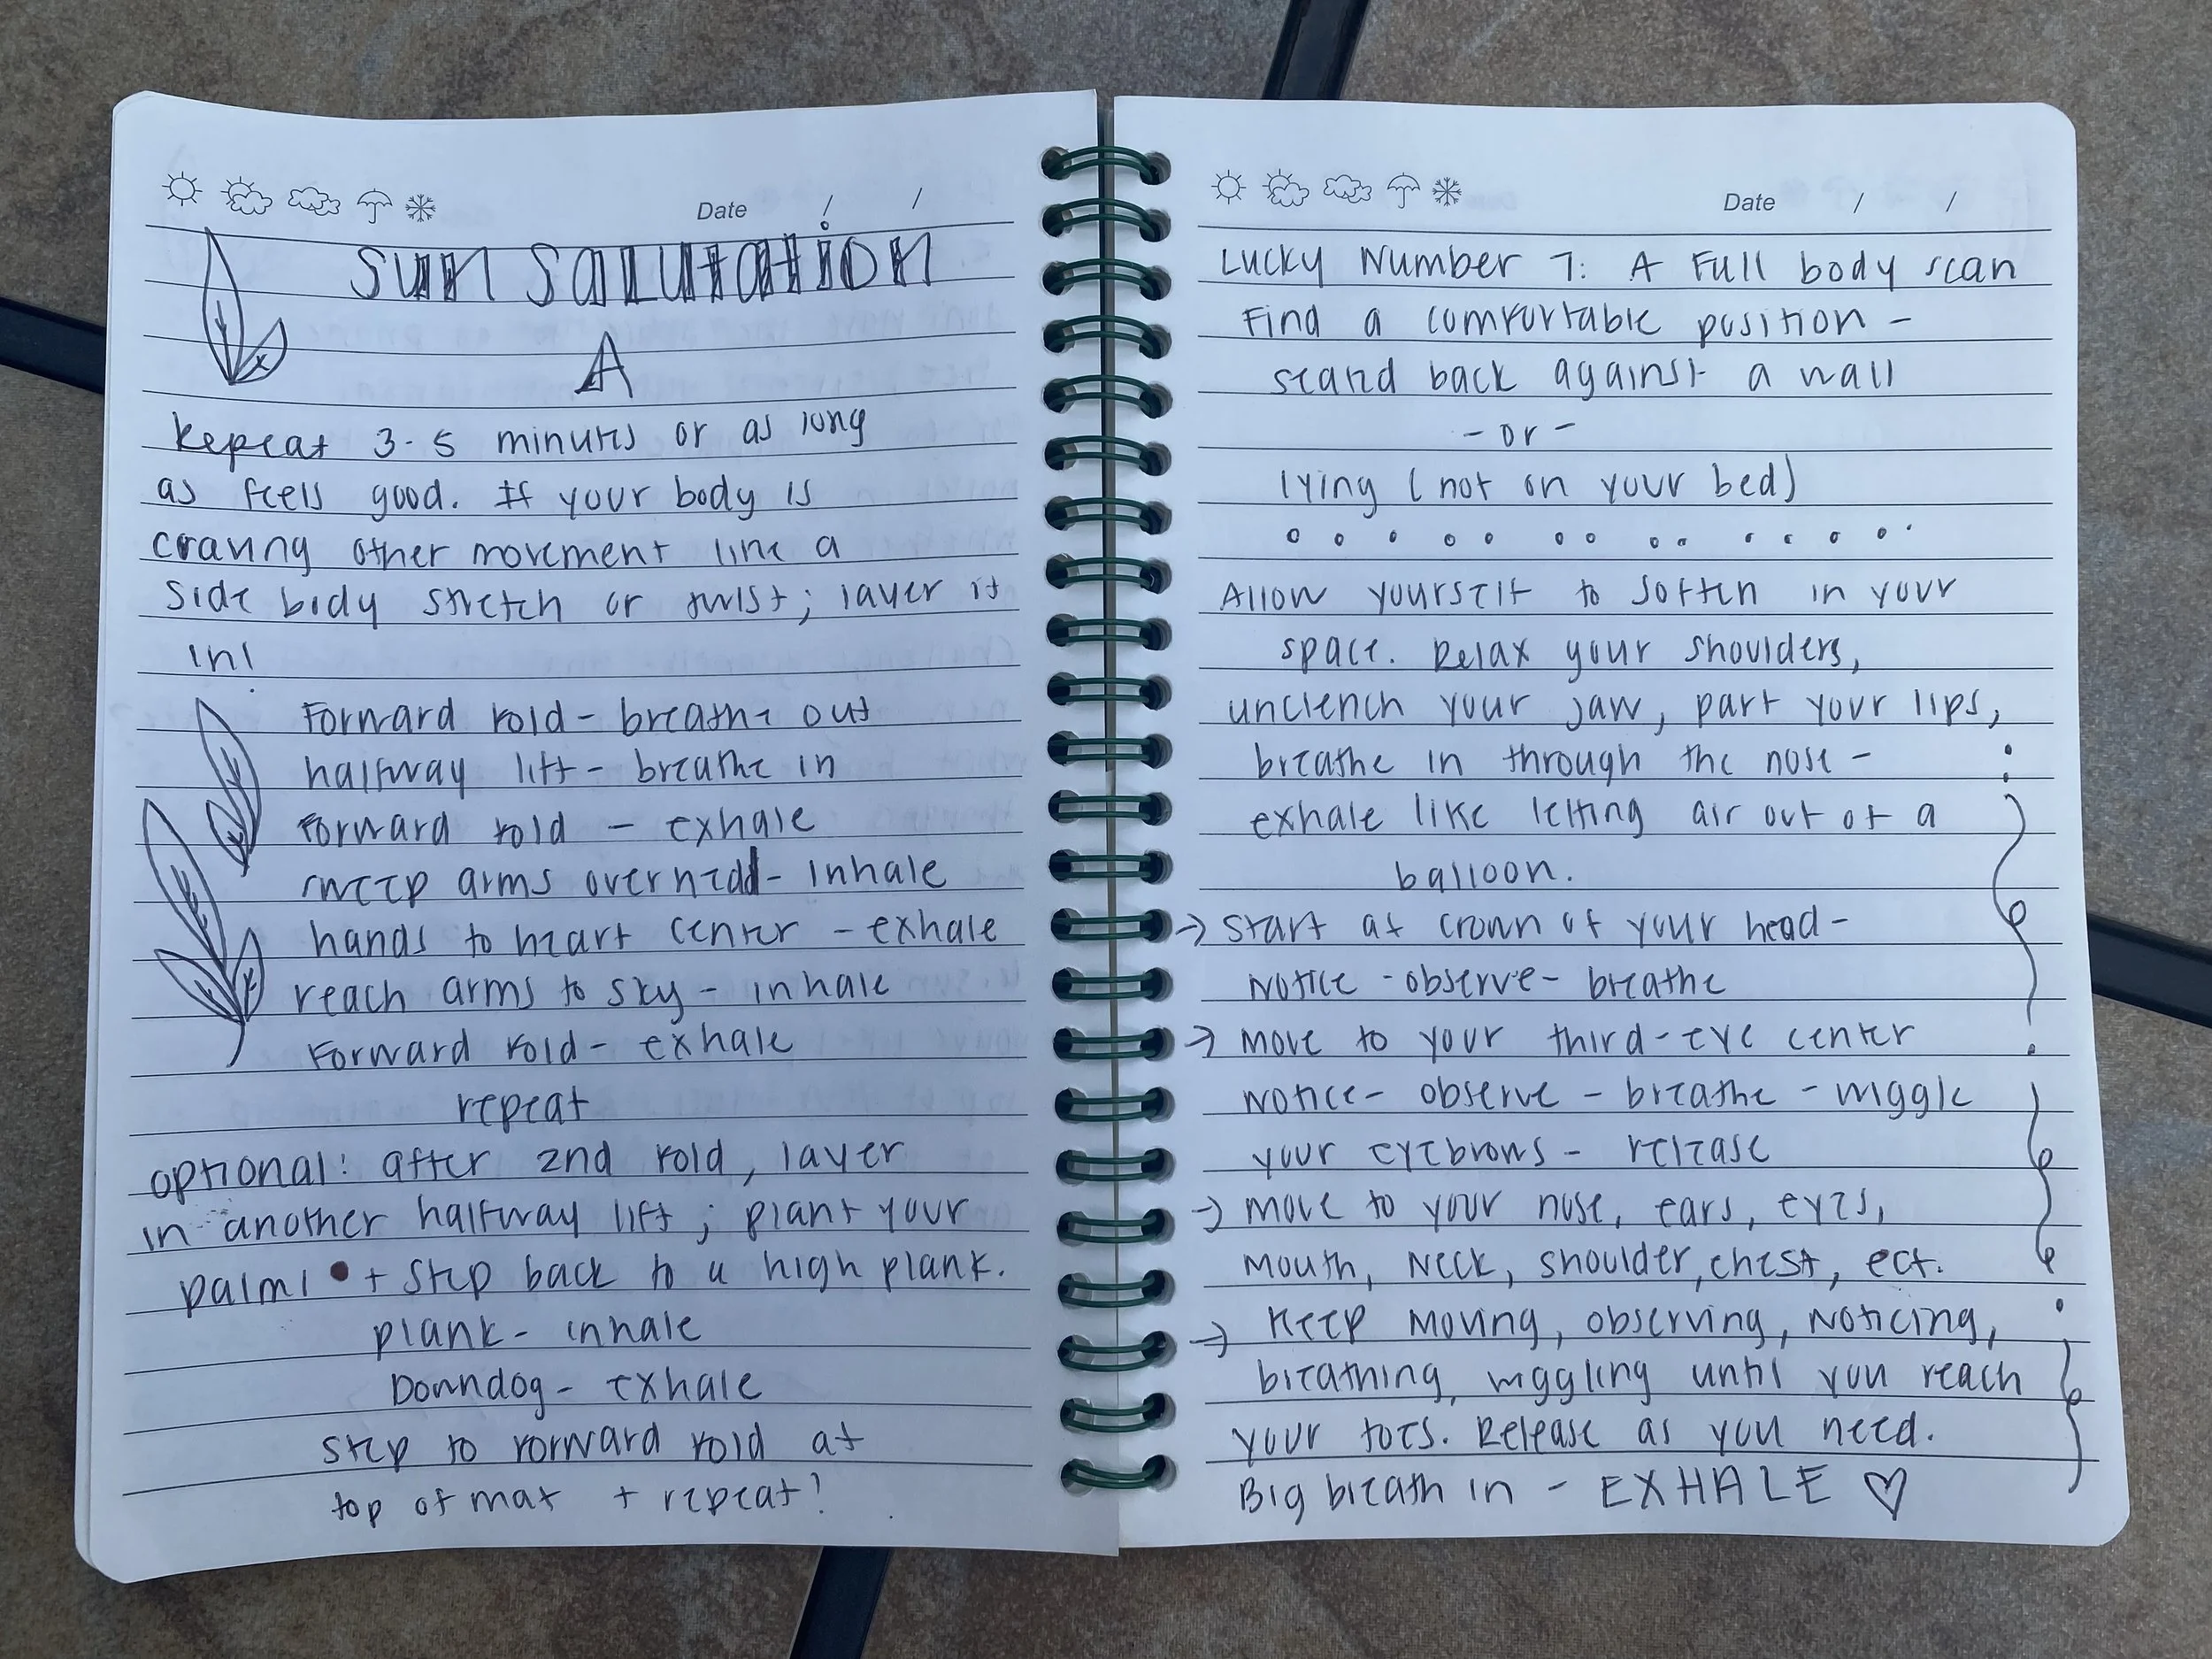 Date / /
Sun Salutation
A
Repeat 3-5 minutes or as long
as feels good. If your body is
craving other movement like a
side body stretch or twist; layer it
in!
Forward fold - breathe out
halfway lift - breathe in
forward fold - exhale
sweep arms overhead - inhale
hands to heart center - exhale
reach arms to sky - inhale
Forward fold - exhale
repeat
optional: after 2nd fold, layer
in another halfway lift; plant your
palms + step back to a high plank.
plank - inhale
Downdog - exhale
step to forward fold at
top of mat + repeat!
Date / /
Lucky Number 7: A Full body scan
Find a comfortable position -
stand back against a wall
- or -
lying (not on your bed)
Allow yourself to soften in your
space. Relax your shoulders,
unclench your jaw, part your lips,
breathe in through the nose -
exhale like letting air out of a
balloon.
→ start at crown of your head -
Notice - observe - breathe
→ move to your third-eye center
Notice - observe - breathe - wiggle
your eyebrows - release
→ move to your nose, ears, eyes,
Mouth, Neck, shoulder, chest, ect.
→ Keep moving, observing, noticing,
breathing, wiggling until you reach
your toes. Release as you need.
Big breath in - EXHALE ♡